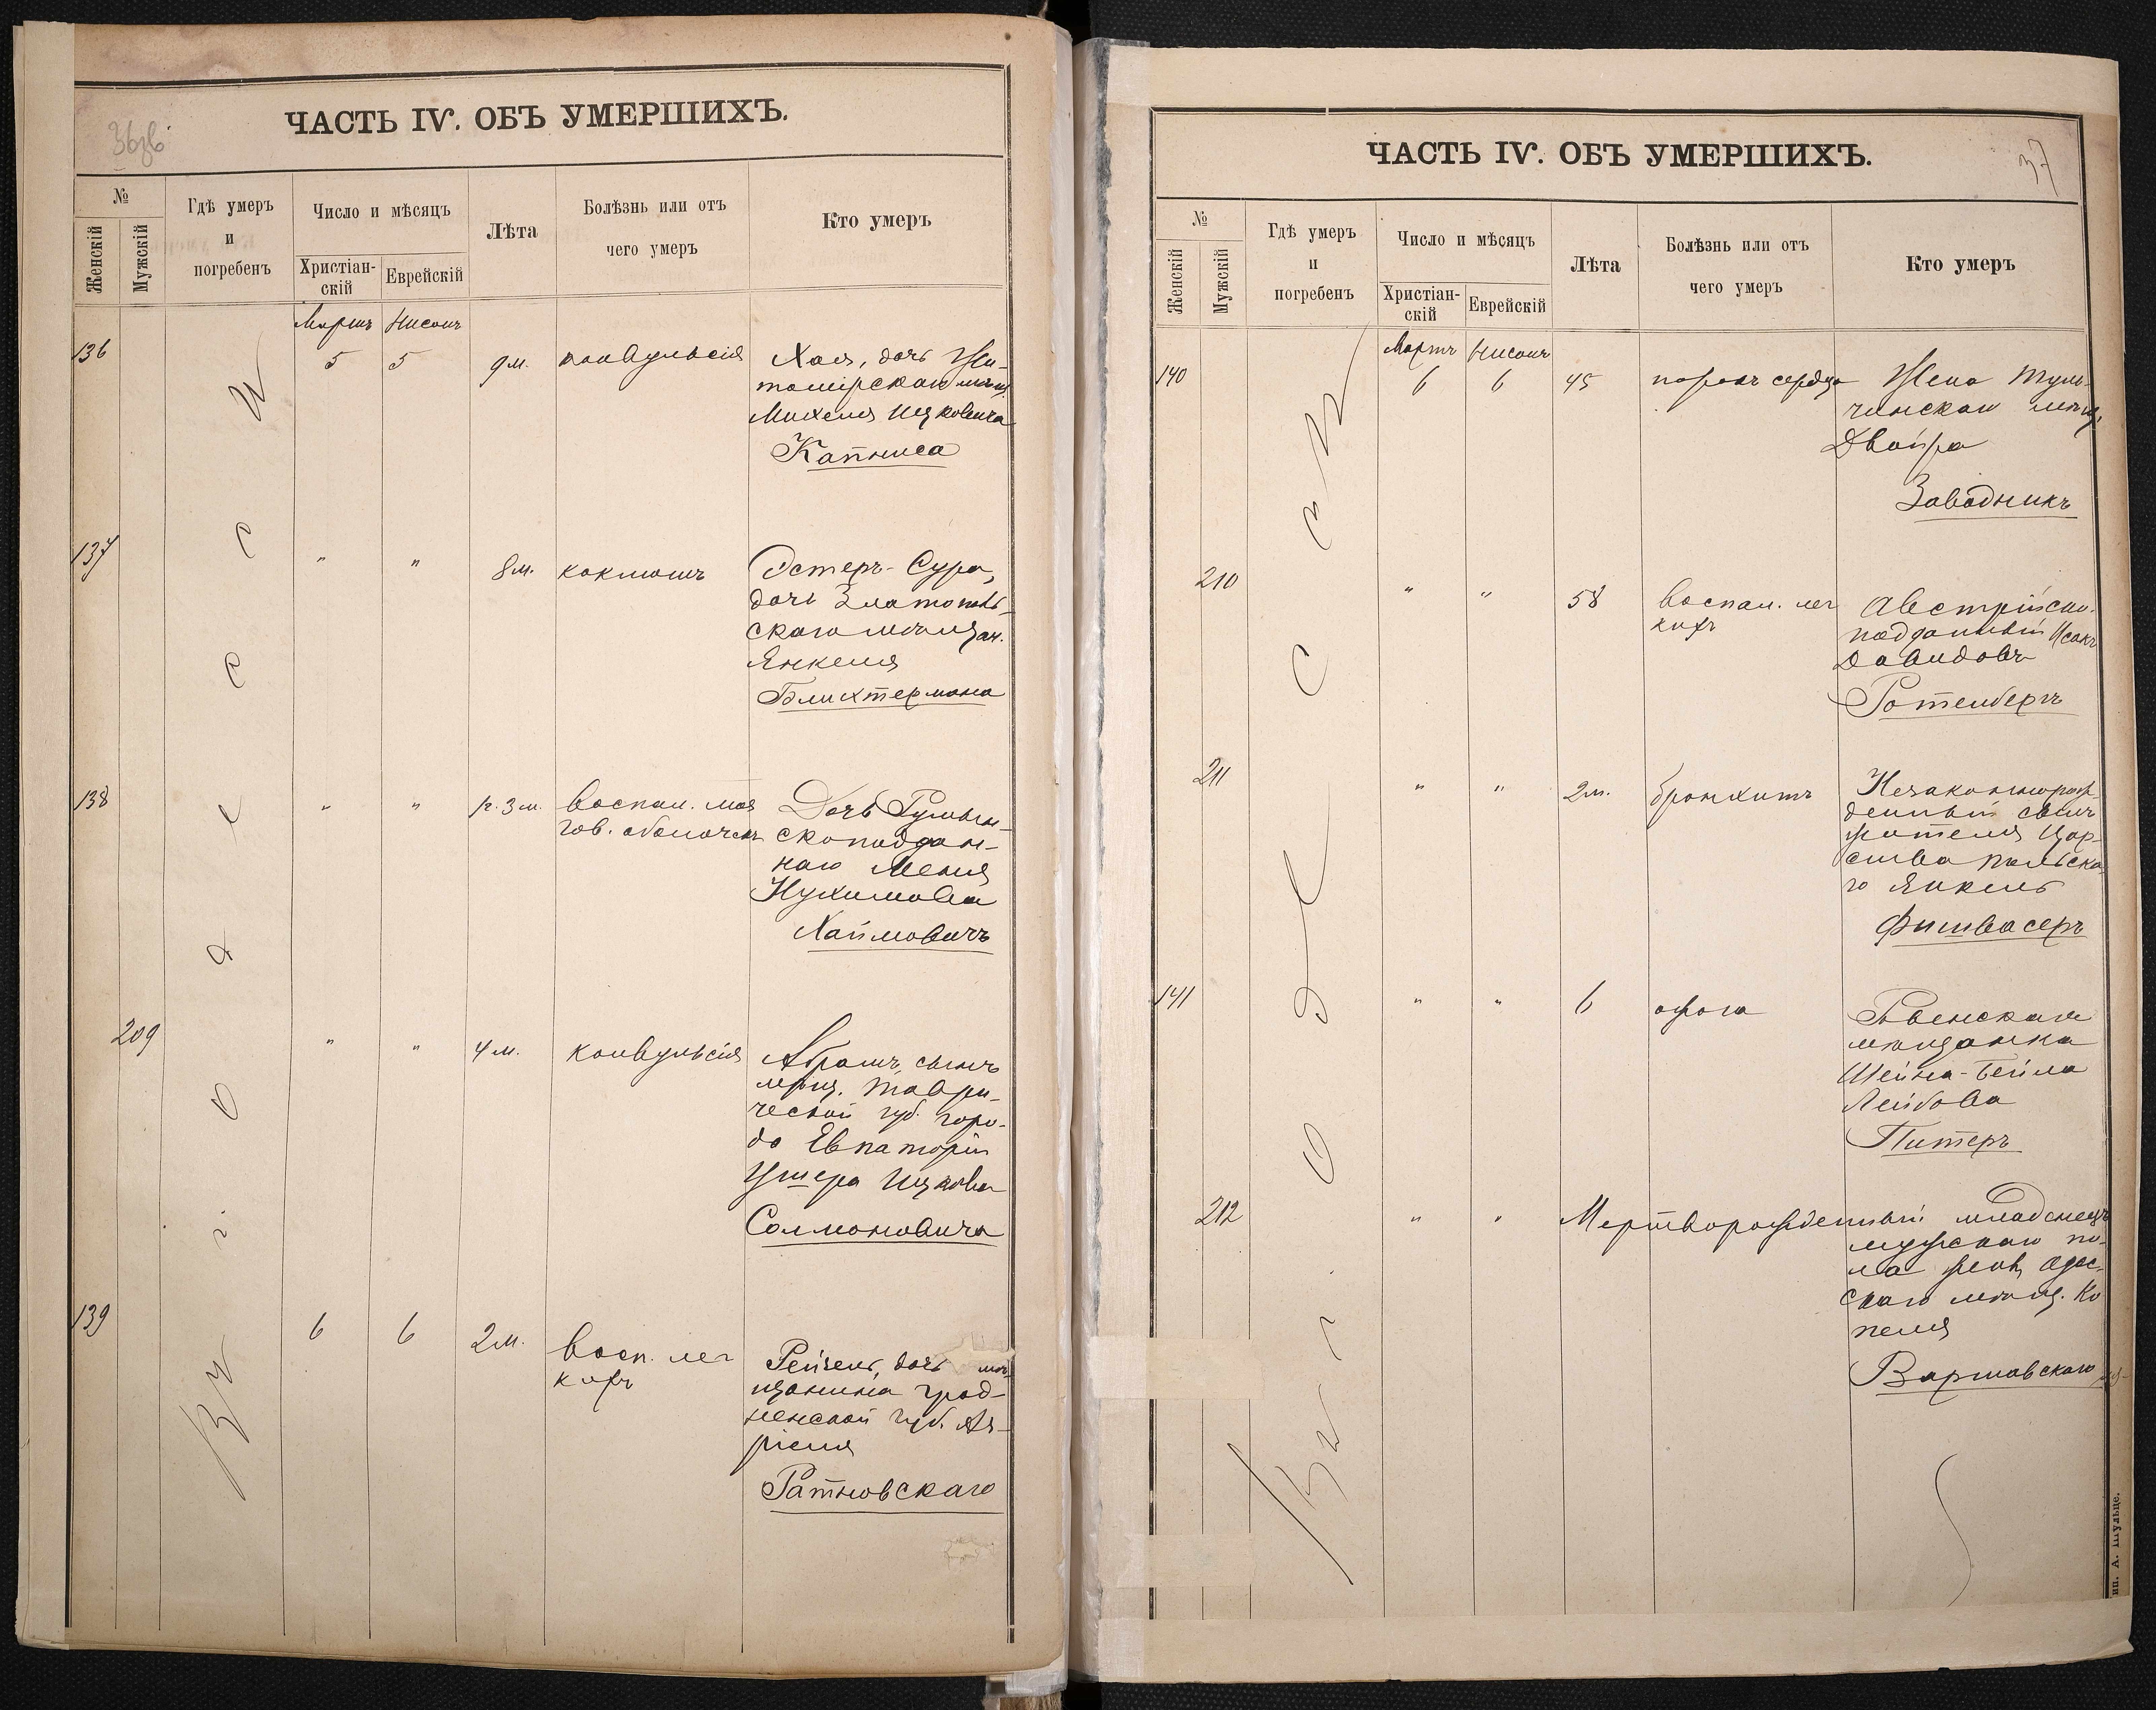 ЧАСТЬ IV. ОБЪ УМЕРШИХЪ.
№
Женскій
Мужскій
Гдѣ умеръ
и
погребенъ
Число и мѣсяцъ
Христіан-
скій
Еврейскій
Лѣта
Болѣзнь или отъ
чего умеръ
Кто умеръ
Въ г. Одессѣ
Мартъ Нисонъ
136 5 5 9 м. конвульсія Хая, дочь Жи-
томірскаго мѣщ.
Михеля Ицковича
Капниса
137 " " 8 м. коклюшъ Эстеръ-Сура,
дочь Златополь-
скаго мѣщан.
Янкеля
Блихтермана
138 " " 1 г. 3 м. воспал. моз Дочь Румын-
гов. оболочекъ скоподдан-
наго Меня
Нухимова
Хаймовичъ
209 " " 4 м. конвульсія Абрамъ, сынъ
мѣщ. Таври-
ческой губ. горо-
да Евпаторіи
Ушера Ицкова
Солмоновича
139 6 6 2 м. восп. лег Рейзель, дочь мѣ-
кихъ щанина Грод-
ненской губ. Ая-
ріеля
Ратновскаго
ЧАСТЬ IV. ОБЪ УМЕРШИХЪ.
37
№
Женскій
Мужскій
Гдѣ умеръ
и
погребенъ
Число и мѣсяцъ
Христіан-
скій
Еврейскій
Лѣта
Болѣзнь или отъ
чего умеръ
Кто умеръ
Въ г. Одессѣ
Мартъ Нисонъ
140 6 6 45 порокъ сердца Жена Туль-
чинскаго мѣщ.
Двойра
Заводникъ
210 " " 58 воспал. лег Австрійско-
кихъ подданный Исакъ
Давидовъ
Ротенбергъ
211 " " 2 м. бронхитъ Незаконнорож-
денный сынъ
жителя Цар-
ства Польска-
го Янкель
Фишвасеръ
141 " " 6 ожога Ровенская
мѣщанка
Шейна-Бейла
Лейбова
Питеръ
212 " " Мертворожденный младенецъ
мужскаго по-
ла жены Одес-
скаго мѣщ. Ко
пеля
Варшавскаго
ип. А. Шульце.